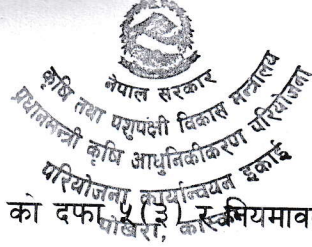 नेपाल सरकार
कृषि तथा पशुपंक्षी विकास मन्त्रालय
प्रधानमन्त्री कृषि आधुनिकीकरण परियोजना
परियोजना कार्यान्वयन इकाई
पोखरा, कास्की
को दफा ५(३) नियमाव